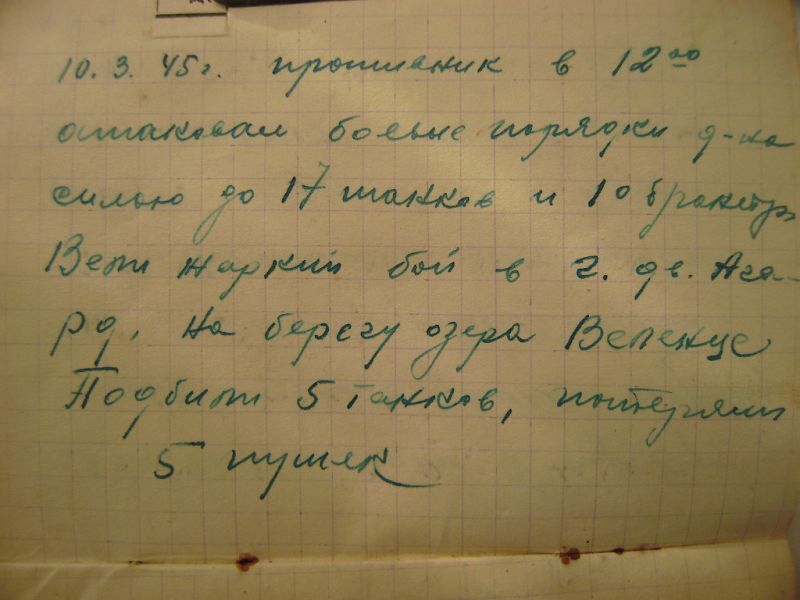 10. 3. 45 г. противник в 12⁰⁰
атаковал боевые порядки д-на
силою до 17 танков и 10 бронетр.
Вели жаркий бой в г. дв. Ага-
рд, на берегу озера Веленце
Подбили 5 танков, потеряли
5 пушек